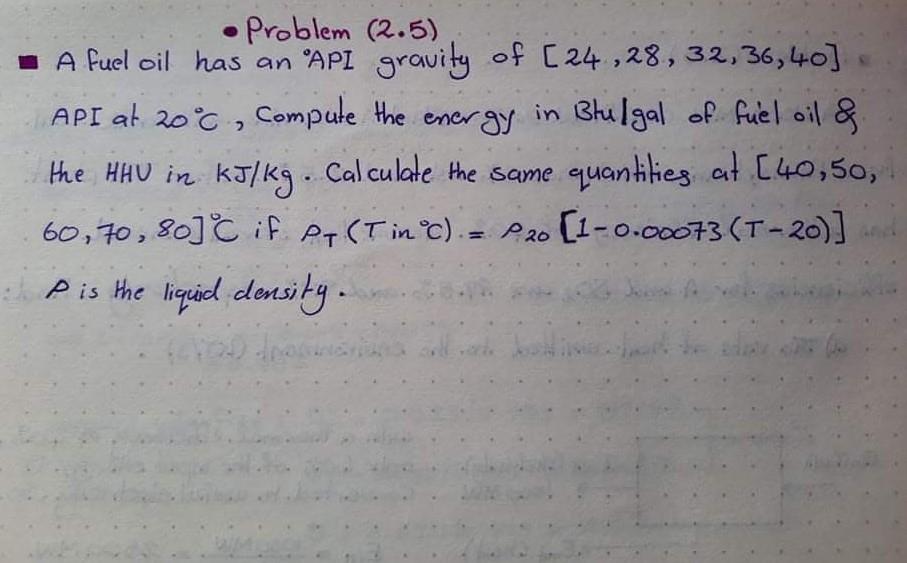 • Problem (2.5)
A fuel oil has an °API gravity of [24, 28, 32, 36, 40]
API at 20°C, Compute the energy in Btu/gal of fuel oil &
the HHV in kJ/kg. Calculate the same quantities at [40, 50,
60, 70, 80]°C if ρT (T in °C) = ρ20 [1-0.00073 (T-20)]
ρ is the liquid density.